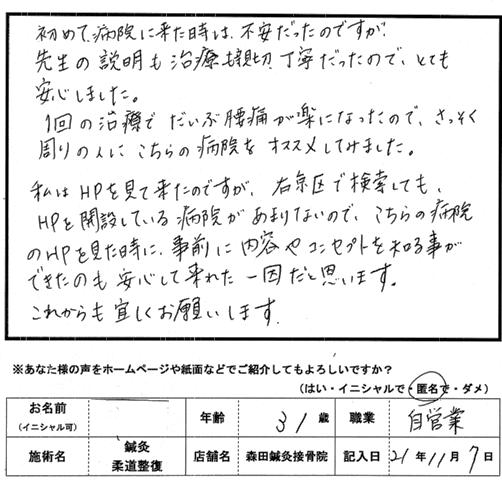 初めて、病院に来た時は、不安だったのですが、
先生の説明も治療も親切、丁寧だったので、とても
安心しました。
1回の治療でだいぶ腰痛が楽になったので、さっそく
周りの人にこちらの病院をオススメしてみました。
私はHPを見て来たのですが、右京区で検索しても、
HPを開設している病院があまりないので、こちらの病院
のHPを見た時に、事前に内容やコンセプトを知る事が
できたのも安心して来れた一因だと思います。
これからも宜しくお願いします。
※あなた様の声をホームページや紙面などでご紹介してもよろしいですか？
（はい・イニシャルで・匿名で・ダメ）
お名前 （イニシャル可） 年齢 31歳 職業 自営業
施術名 鍼灸 柔道整復 店舗名 森田鍼灸接骨院 記入日 21年11月7日